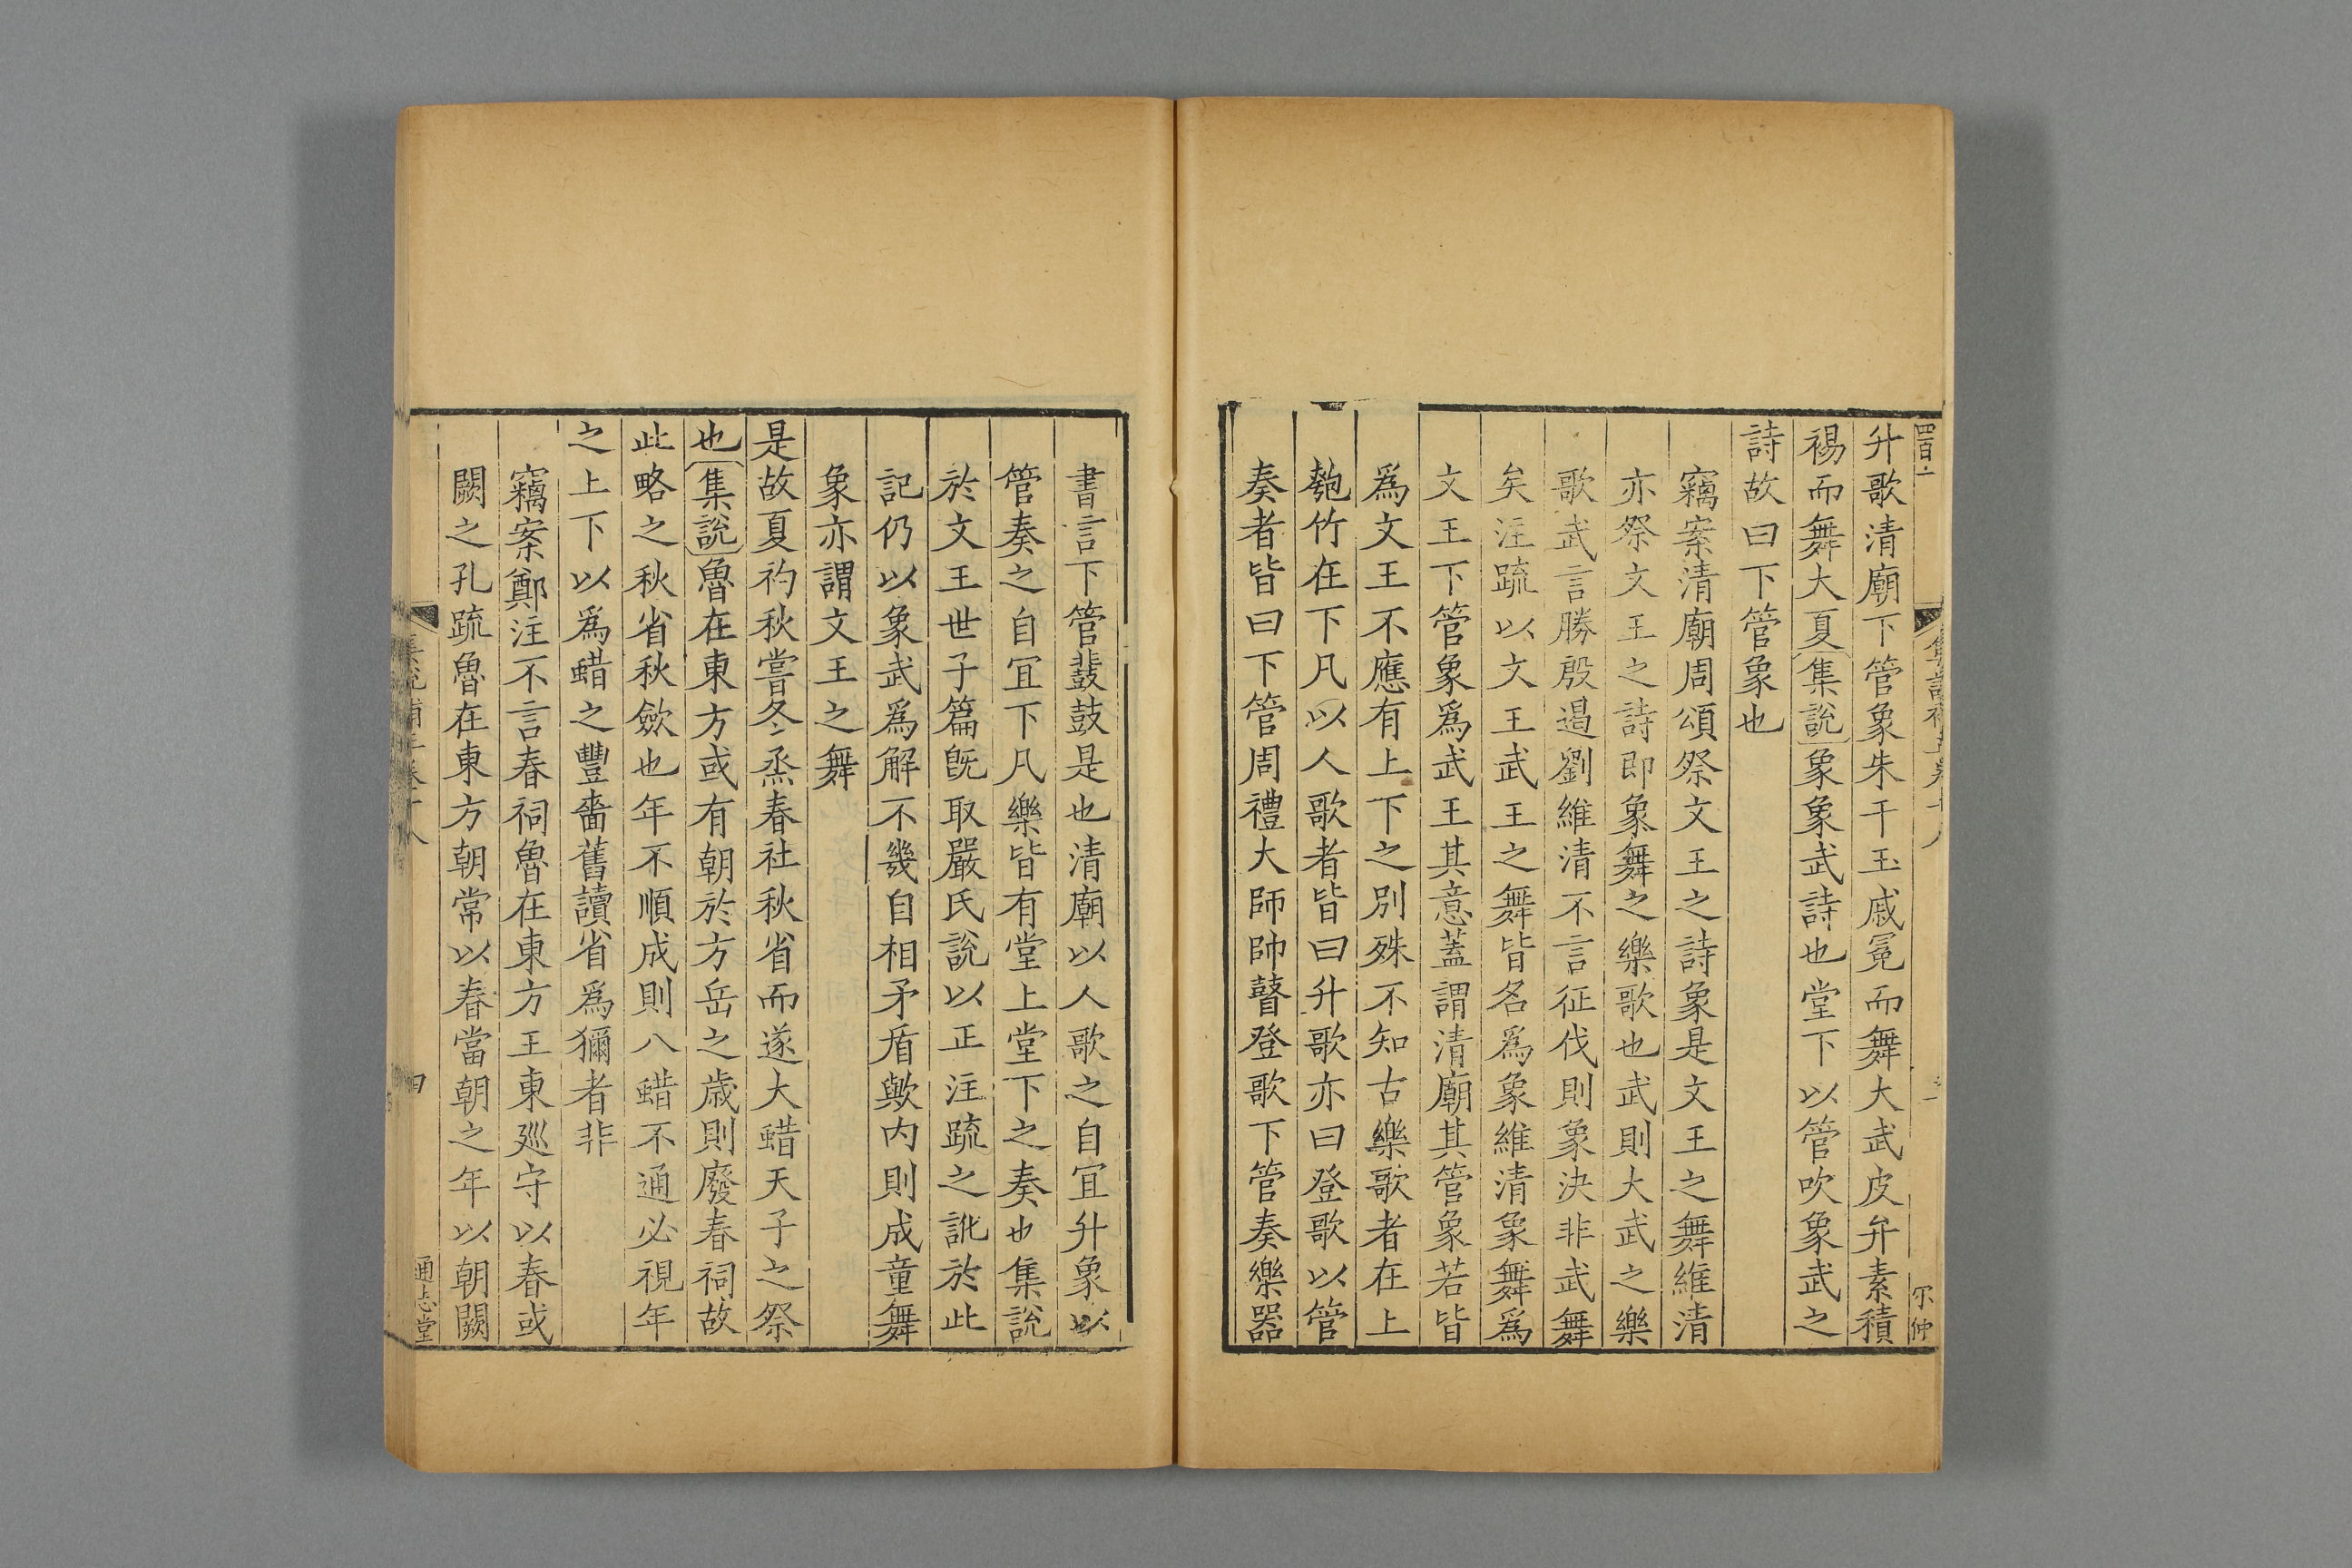 升歌清廟下管象朱干玉戚冕而舞大武皮弁素積
裼而舞大夏集說象象武詩也堂下以管吹象武之
詩故曰下管象也
竊案清廟周頌祭文王之詩象是文王之舞維清
亦祭文王之詩即象舞之樂歌也武則大武之樂
歌武言勝殷遏劉維清不言征伐則象決非武舞
矣注疏以文王武王之舞皆名爲象維清象舞爲
文王下管象爲武王其意蓋謂清廟其管象若皆
爲文王不應有上下之別殊不知古樂歌者在上
匏竹在下凡以人歌者皆曰升歌亦曰登歌以管
奏者皆曰下管周禮大師帥瞽登歌下管奏樂器
書言下管鼗鼓是也清廟以人歌之自宜升象以
管奏之自宜下凡樂皆有堂上堂下之奏也集說
於文王世子篇旣取嚴氏說以正注疏之訛於此
記仍以象武爲解不幾自相矛盾歟內則成童舞
象亦謂文王之舞
是故夏礿秋嘗冬烝春社秋省而遂大蜡天子之祭
也集說魯在東方或有朝於方岳之歲則廢春祠故
此略之秋省秋斂也年不順成則八蜡不通必視年
之上下以爲蜡之豐嗇舊讀省爲獮者非
竊案鄭注不言春祠魯在東方王東廵守以春或
闕之孔疏魯在東方朝常以春當朝之年以朝闕
通志堂